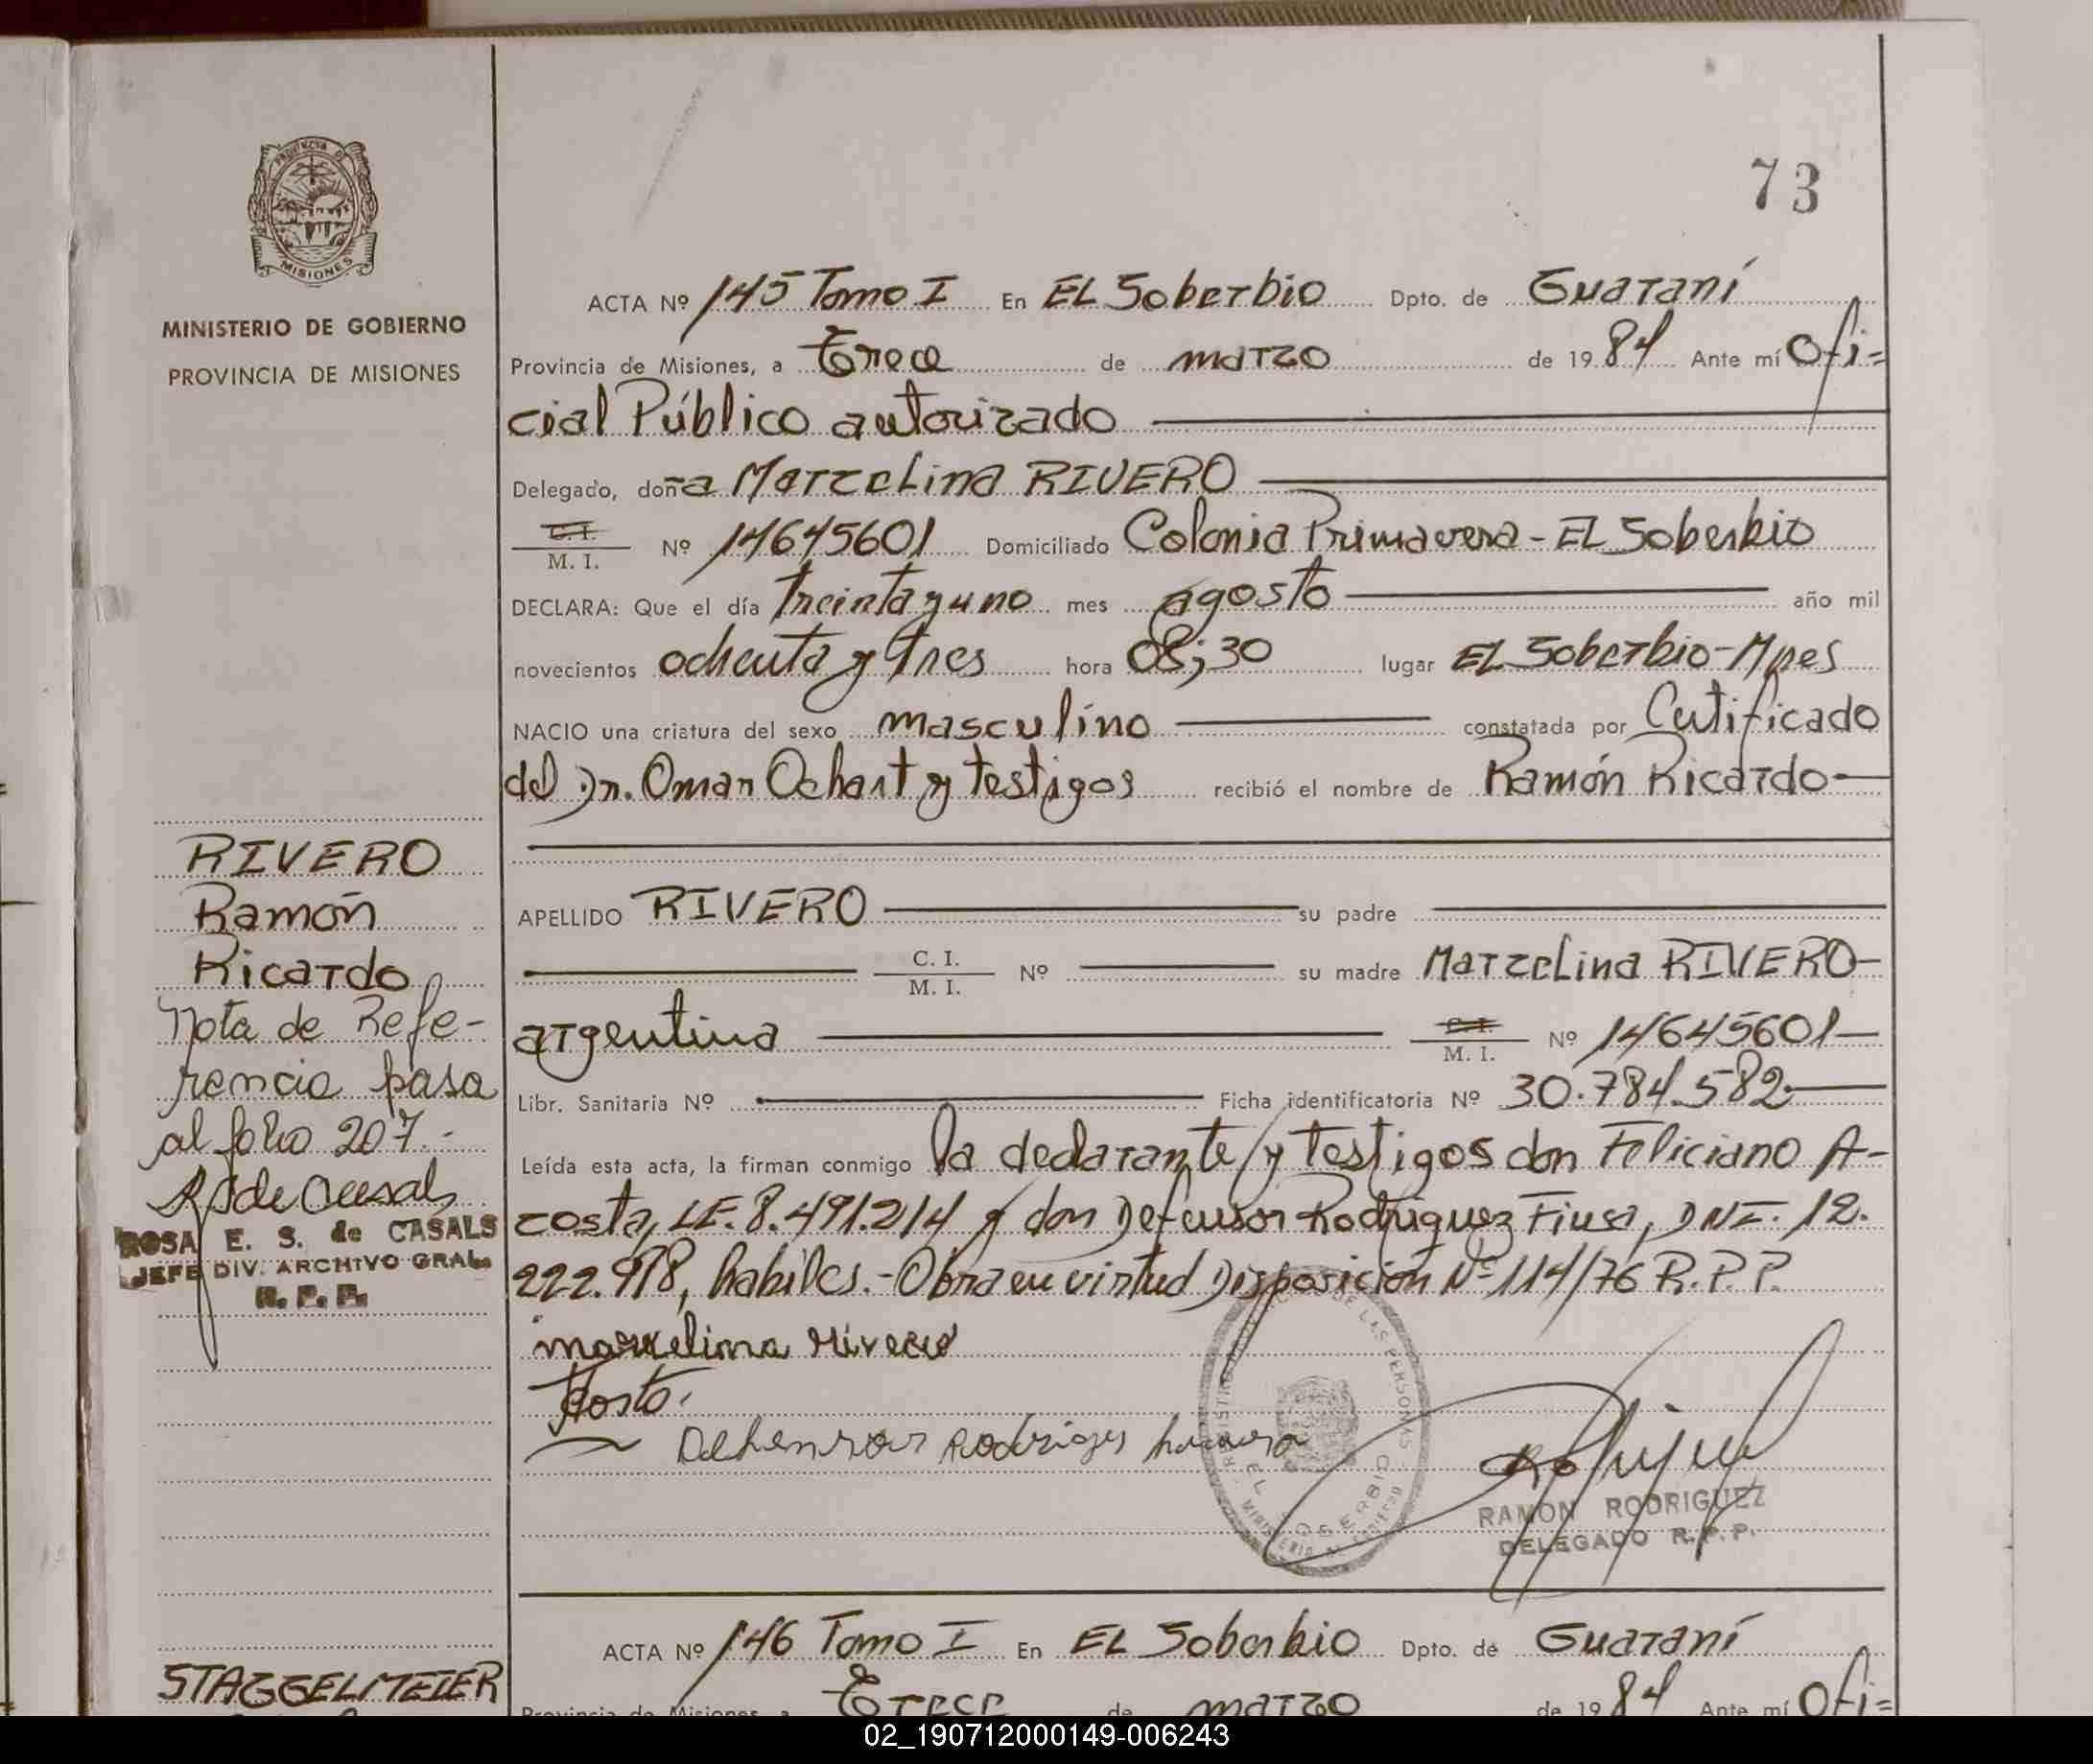 73
PROVINCIA DE
MISIONES
MINISTERIO DE GOBIERNO
PROVINCIA DE MISIONES
ACTA Nº 145 Tomo I En EL Soberbio Dpto. de Guaraní
Provincia de Misiones, a Trece de marzo de 1984 Ante mí Ofi=
cial Público autorizado
Delegado, doña Marzelina RIVERO
C. I.
M. I. Nº 14645601 Domiciliado Colonia Primavera - EL Soberbio
DECLARA: Que el día treinta y uno mes agosto año mil
novecientos ochenta y tres hora 08;30 lugar EL Soberbio-Mnes
NACIO una criatura del sexo masculino constatada por Certificado
del Dr. Omar Ochart y testigos recibió el nombre de Ramón Ricardo-
APELLIDO RIVERO su padre
C. I.
M. I. Nº su madre Marzelina RIVERO-
argentina C. I.
M. I. Nº 14645601-
Libr. Sanitaria Nº Ficha identificatoria Nº 30.784.582-
Leída esta acta, la firman conmigo la declarante y testigos don Feliciano A-
costa, LE. 8.491.214 y don Defensor Rodriguez Fiusa, DNI. 12.
222.978, habiles.-Obra en virtud Disposición Nº 114/76 R.P.P.
marzelina Rivero
Acosta.
Defensor Rodrigues
REGISTRO DE LAS PERSONAS
EL SOBERBIO
MINISTERIO DE GOBIERNO
RAMON RODRIGUEZ
DELEGADO R.P.P.
RIVERO
Ramón
Ricardo
Nota de Refe-
rencia pasa
al folio 207.-
R S de Casals
ROSA E. S. de CASALS
JEFE DIV. ARCHIVO GRAL.
R. P. P.
ACTA Nº 146 Tomo I En EL Soberbio Dpto. de Guaraní
STAGGELMEIER
Provincia de Misiones, a Trece de marzo de 1984 Ante mí Ofi=
02_190712000149-006243